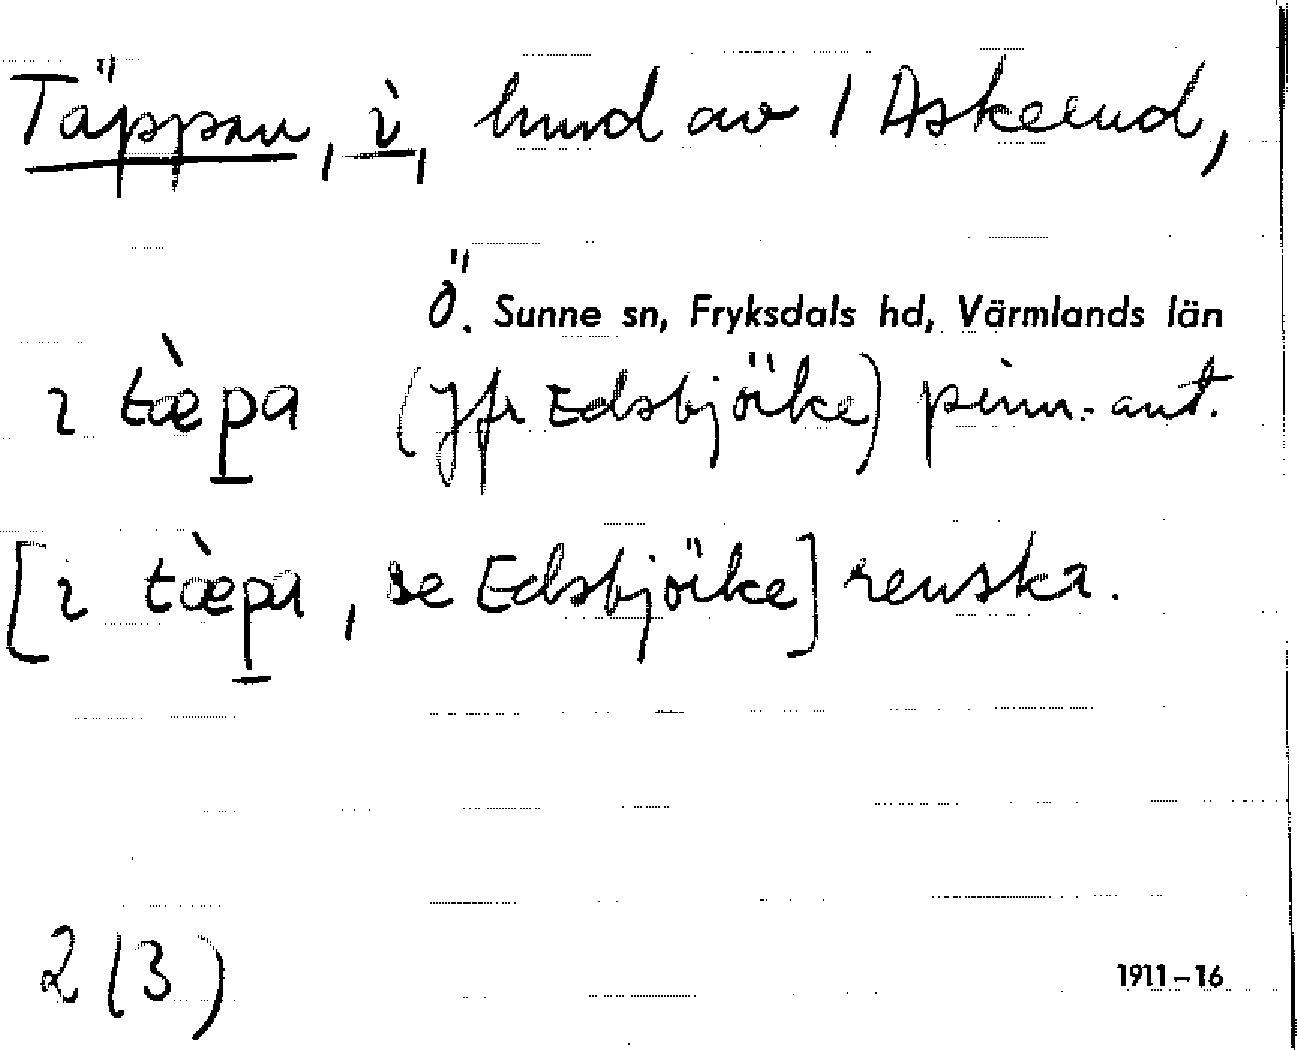 Täppan, i, hmd av 1 Askerud,
Ö. Sunne sn, Fryksdals hd, Värmlands län
ı tæ̀pa (Jfr Edsbjörke) pinn.-ant.
[ı tæ̀pa, se Edsbjörke] renskr.
2 (3)
1911–16